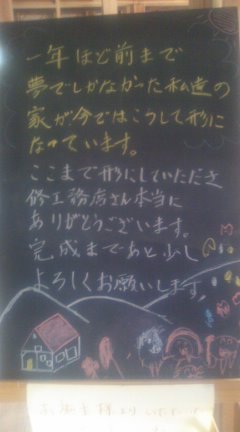 一年ほど前まで
夢でしかなかった私達の
家が今ではこうして形に
なっています。
ここまで形にしていただき
修工務店さん本当に
ありがとうございます。
完成まであと少し
よろしくお願いします。
お施主様より